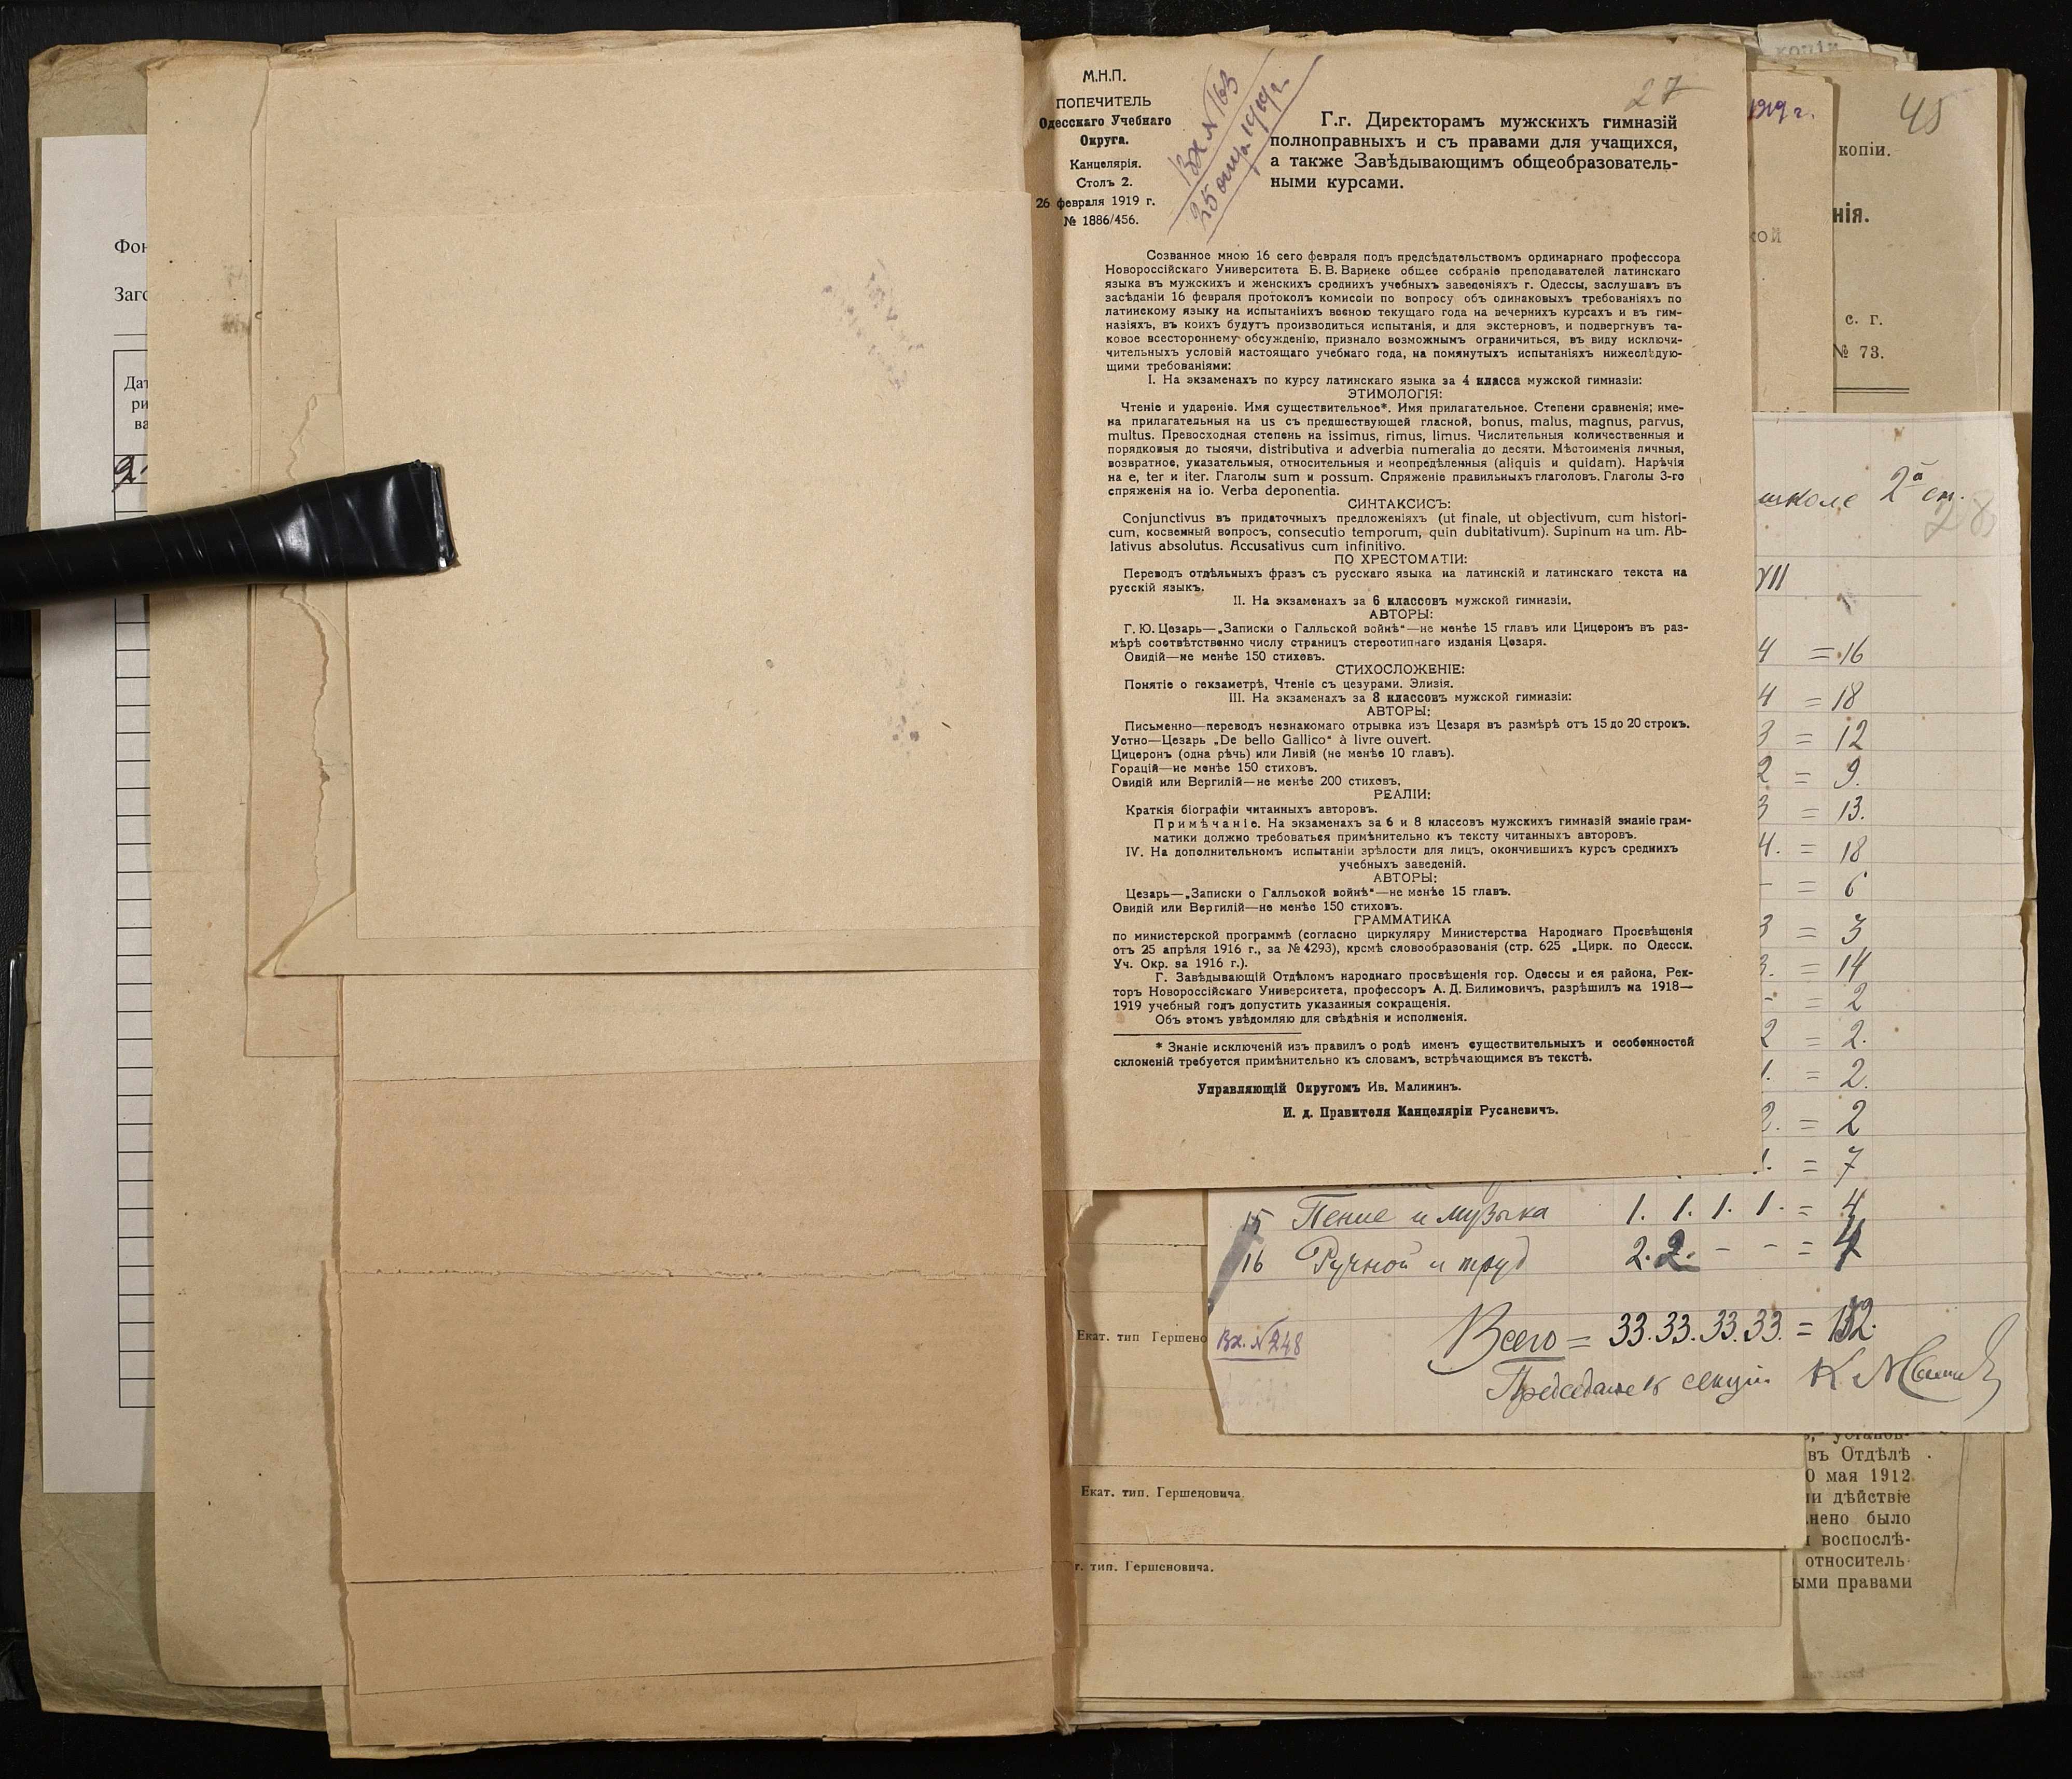 Фон
Заго
Дат
ри
ва
М.Н.П.
ПОПЕЧИТЕЛЬ
Одесскаго Учебнаго
Округа.
Канцелярія.
Столъ 2.
26 февраля 1919 г.
№ 1886/456.
Вх № 163
1919 г.
27
Г.г. Директорамъ мужскихъ гимназій
полноправныхъ и съ правами для учащихся,
а также Завѣдывающимъ общеобразователь-
ными курсами.
Созванное мною 16 сего февраля подъ предсѣдательствомъ ординарнаго профессора
Новороссійскаго Университета Б. В. Варнеке общее собраніе преподавателей латинскаго
языка въ мужскихъ и женскихъ среднихъ учебныхъ заведеніяхъ г. Одессы, заслушавъ въ
засѣданіи 16 февраля протоколъ комиссіи по вопросу объ одинаковыхъ требованіяхъ по
латинскому языку на испытаніихъ весною текущаго года на вечернихъ курсахъ и въ гим-
назіяхъ, въ коихъ будутъ производиться испытанія, и для экстерновъ, и подвергнувъ та-
ковое всестороннему обсужденію, признало возможнымъ ограничиться, въ виду исключи-
чительныхъ условій настоящаго учебнаго года, на помянутыхъ испытаніяхъ нижеслѣдую-
щими требованіями:
I. На экзаменахъ по курсу латинскаго языка за 4 класса мужской гимназіи:
ЭТИМОЛОГІЯ:
Чтеніе и удареніе. Имя существительное*. Имя прилагательное. Степени сравненія; име-
на прилагательныя на us съ предшествующей гласной, bonus, malus, magnus, parvus,
multus. Превосходная степень на issimus, rimus, limus. Числительныя количественныя и
порядковыя до тысячи, distributiva и adverbia numeralia до десяти. Мѣстоименія личныя,
возвратное, указательныя, относительныя и неопредѣленныя (aliquis и quidam). Нарѣчія
на e, ter и iter. Глаголы sum и possum. Спряженіе правильныхъ глаголовъ. Глаголы 3-го
спряженія на io. Verba deponentia.
СИНТАКСИСЪ:
Conjunctivus въ придаточныхъ предложеніяхъ (ut finale, ut objectivum, cum histori-
cum, косвенный вопросъ, consecutio temporum, quin dubitativum). Supinum на um. Ab-
lativus absolutus. Accusativus cum infinitivo.
ПО ХРЕСТОМАТІИ:
Переводъ отдѣльныхъ фразъ съ русскаго языка на латинскій и латинскаго текста на
русскій языкъ.
II. На экзаменахъ за 6 классовъ мужской гимназіи.
АВТОРЫ:
Г. Ю. Цезарь—„Записки о Галльской войнѣ“—не менѣе 15 главъ или Цицеронъ въ раз-
мѣрѣ соотвѣтственно числу страницъ стереотипнаго изданія Цезаря.
Овидій—не менѣе 150 стиховъ.
СТИХОСЛОЖЕНІЕ:
Понятіе о гекзаметрѣ, Чтеніе съ цезурами. Элизія.
III. На экзаменахъ за 8 классовъ мужской гимназіи:
АВТОРЫ:
Письменно—переводъ незнакомаго отрывка изъ Цезаря въ размѣрѣ отъ 15 до 20 строкъ.
Устно—Цезарь „De bello Gallico“ à livre ouvert.
Цицеронъ (одна рѣчь) или Ливій (не менѣе 10 главъ).
Горацій—не менѣе 150 стиховъ.
Овидій или Вергилій—не менѣе 200 стиховъ.
РЕАЛІИ:
Краткія біографіи читанныхъ авторовъ.
Примѣчаніе. На экзаменахъ за 6 и 8 классовъ мужскихъ гимназій знаніе грам-
матики должно требоваться примѣнительно къ тексту читанныхъ авторовъ.
IV. На дополнительномъ испытаніи зрѣлости для лицъ, окончившихъ курсъ среднихъ
учебныхъ заведеній.
АВТОРЫ:
Цезарь—„Записки о Галльской войнѣ“—не менѣе 15 главъ.
Овидій или Вергилій—не менѣе 150 стиховъ.
ГРАММАТИКА
по министерской программѣ (согласно циркуляру Министерства Народнаго Просвѣщенія
отъ 25 апрѣля 1916 г., за № 4293), кромѣ словообразованія (стр. 625 „Цирк. по Одесск.
Уч. Окр. за 1916 г.).
Г. Завѣдывающій Отдѣломъ народнаго просвѣщенія гор. Одессы и ея района, Рек-
торъ Новороссійскаго Университета, профессоръ А. Д. Билимовичъ, разрѣшилъ на 1918—
1919 учебный годъ допустить указанныя сокращенія.
Объ этомъ увѣдомляю для свѣдѣнія и исполненія.
* Знаніе исключеній изъ правилъ о родѣ именъ существительныхъ и особенностей
склоненій требуется примѣнительно къ словамъ, встрѣчающимся въ текстѣ.
Управляющій Округомъ Ив. Малининъ.
И. д. Правителя Канцеляріи Русаневичъ.
копіи
1919 г.
45
копіи.
нія.
кой
с. г.
№ 73.
школе 2й ст.
28
VII
4 = 16
4 = 18
3 = 12
2 = 9.
3 = 13.
4. = 18
- = 6
3 = 3
3. = 14
- = 2
2 = 2.
1. = 2.
2. = 2
1. = 7
15 Пение и музыка 1. 1. 1. 1. = 4
16 Ручной и труд 2. 2. - - = 4
Всего = 33. 33. 33. 33. = 132.
Вх. № 248
Председатель секции
Екат. тип Гершено
Екат. тип. Гершеновича.
т. тип. Гершеновича.
въ Отдѣлѣ
0 мая 1912
ии дѣйствіе
нено было
воспослѣ-
относитель-
ыми правами